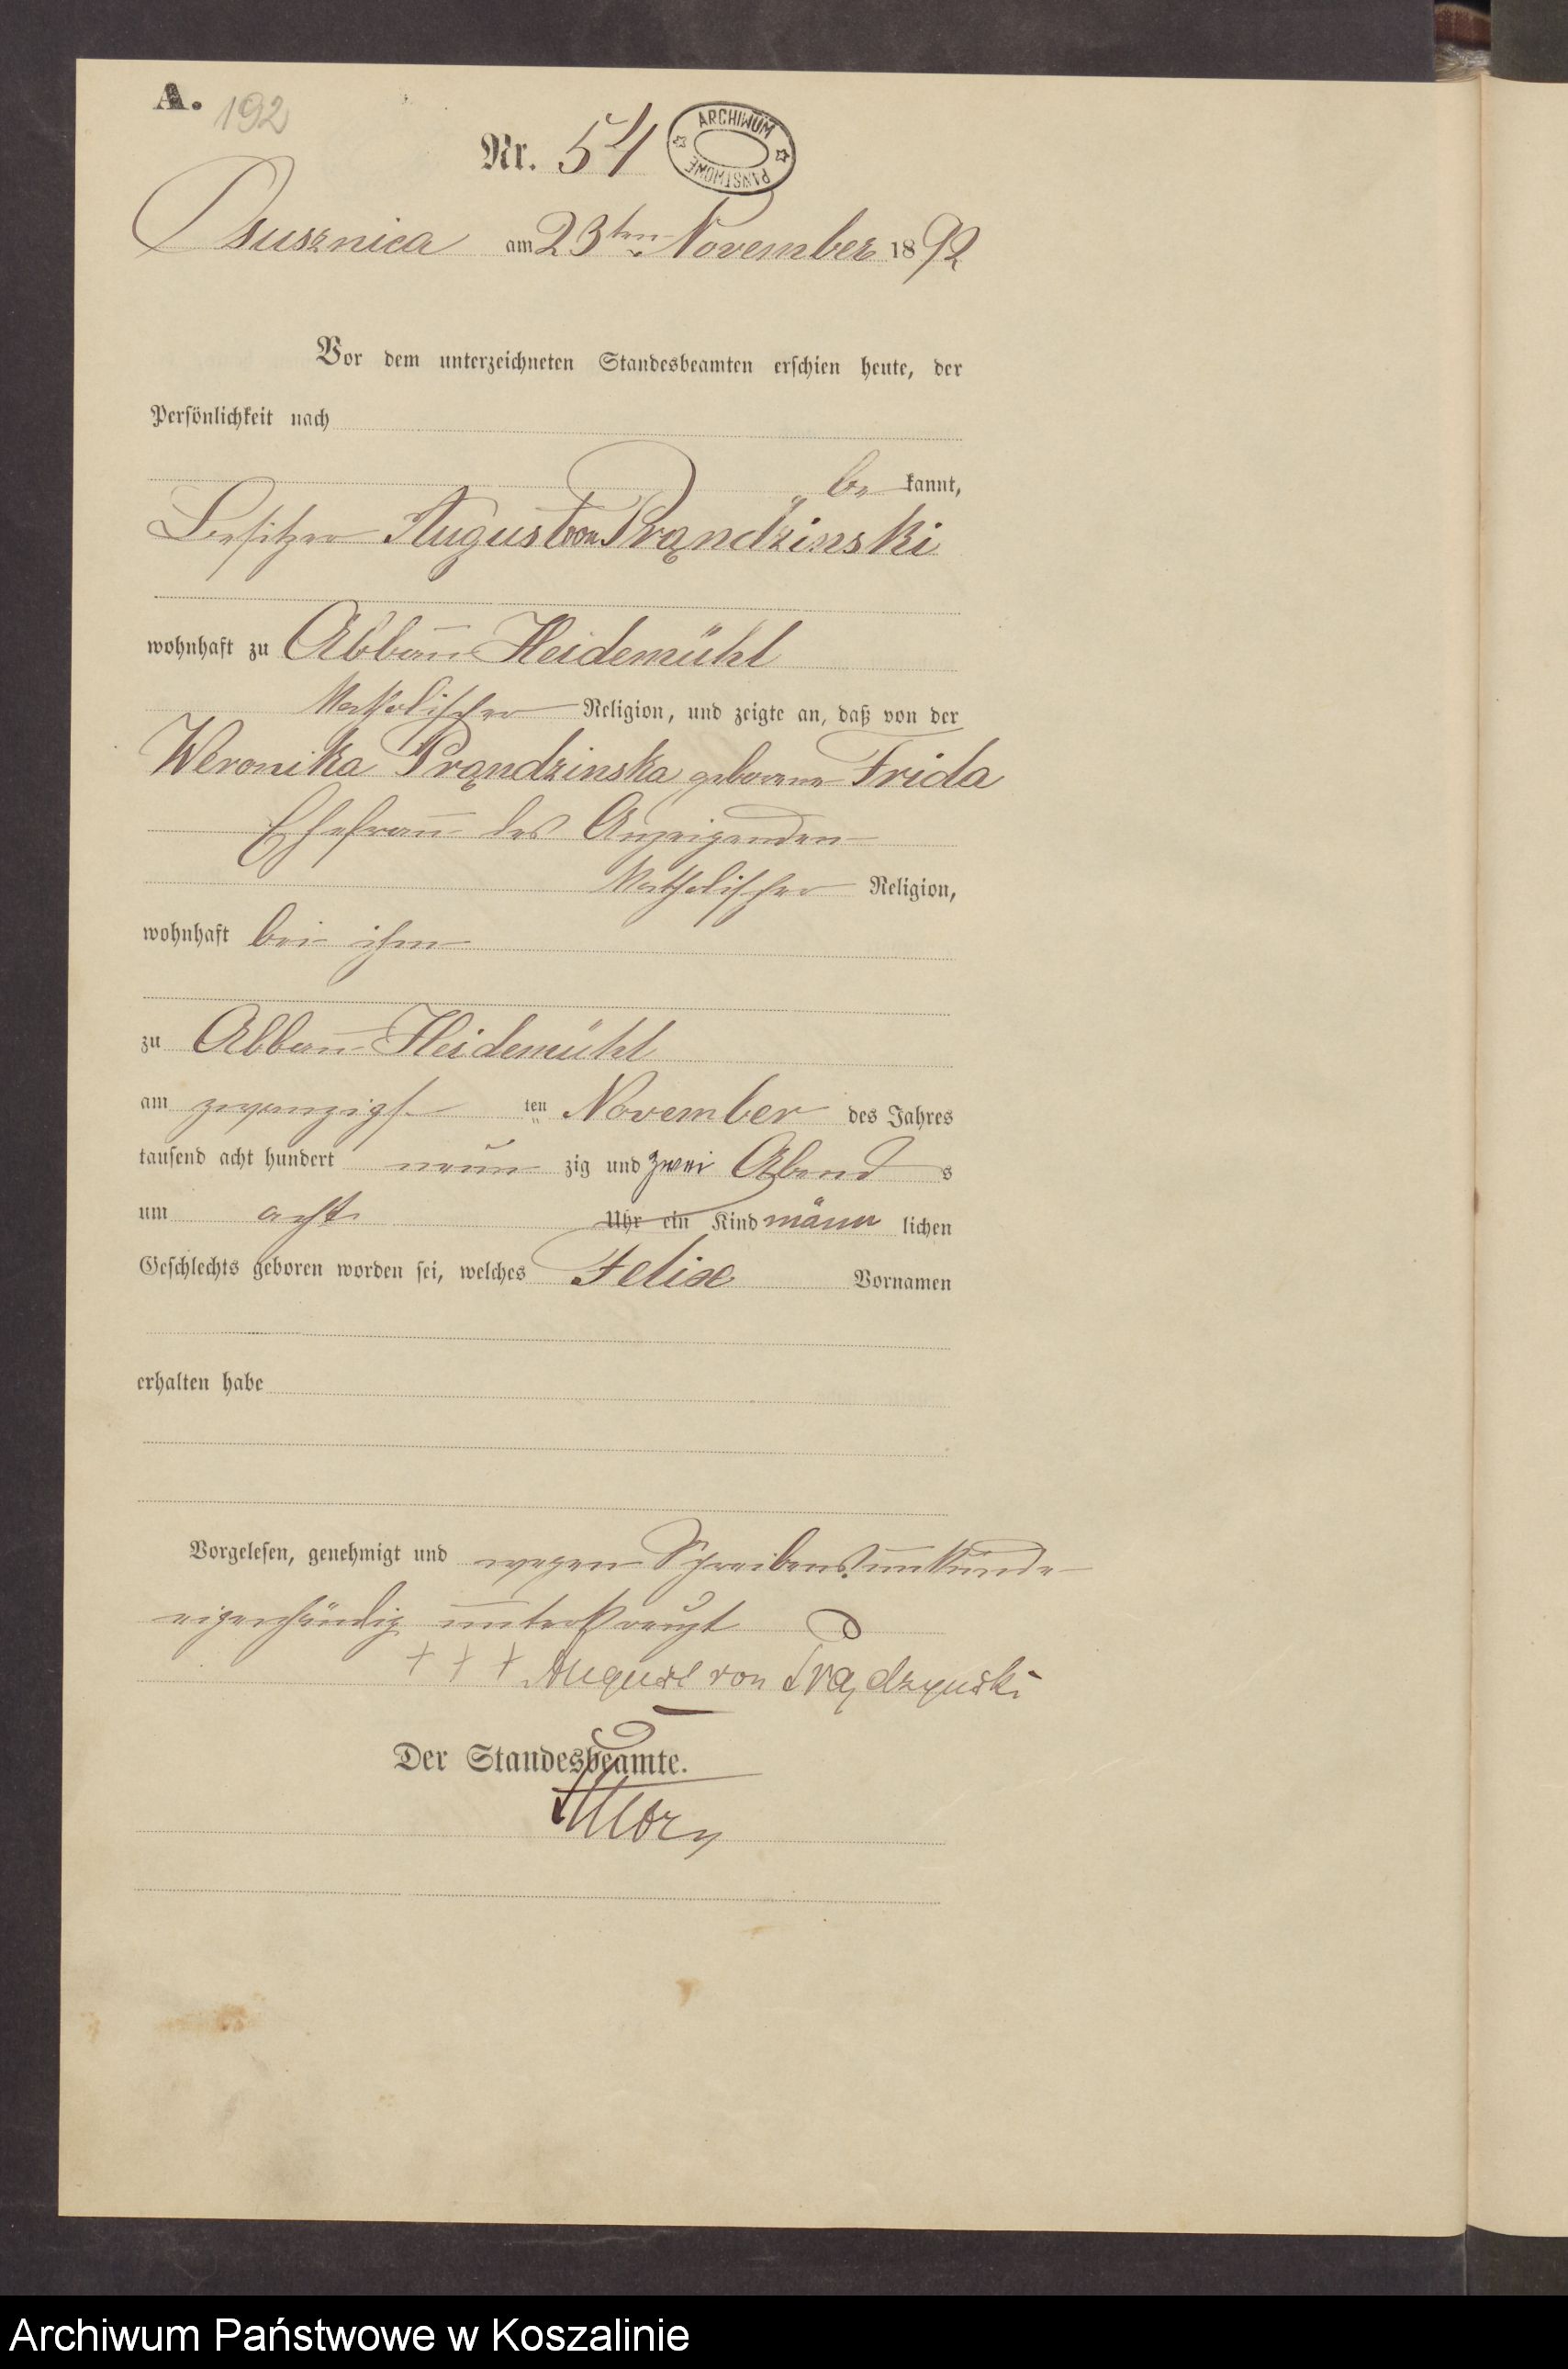 A.
192
Nr. 54
ARCHIWUM PAŃSTWOWE
Osusznica am 23ten November 1892
Vor dem unterzeichneten Standesbeamten erschien heute, der
Persönlichkeit nach
be kannt,
Besitzer August von Prądzinski
wohnhaft zu Abbau Heidemühl
katholischer Religion, und zeigte an, daß von der
Weronika Prądzinska geborene Frida
Ehefrau des Anzeigenden
katholischer Religion,
wohnhaft bei ihm
zu Abbau Heidemühl
am zwanzigs ten November des Jahres
tausend acht hundert neun zig und zwei Abend s
um acht Uhr ein Kind männ lichen
Geschlechts geboren worden sei, welches Felix Vornamen
erhalten habe
Vorgelesen, genehmigt und wegen Schreibensunkunde
eigenhändig unterkreuzt
+ + + August von Prądzynski
Der Standesbeamte.
Archiwum Państwowe w Koszalinie